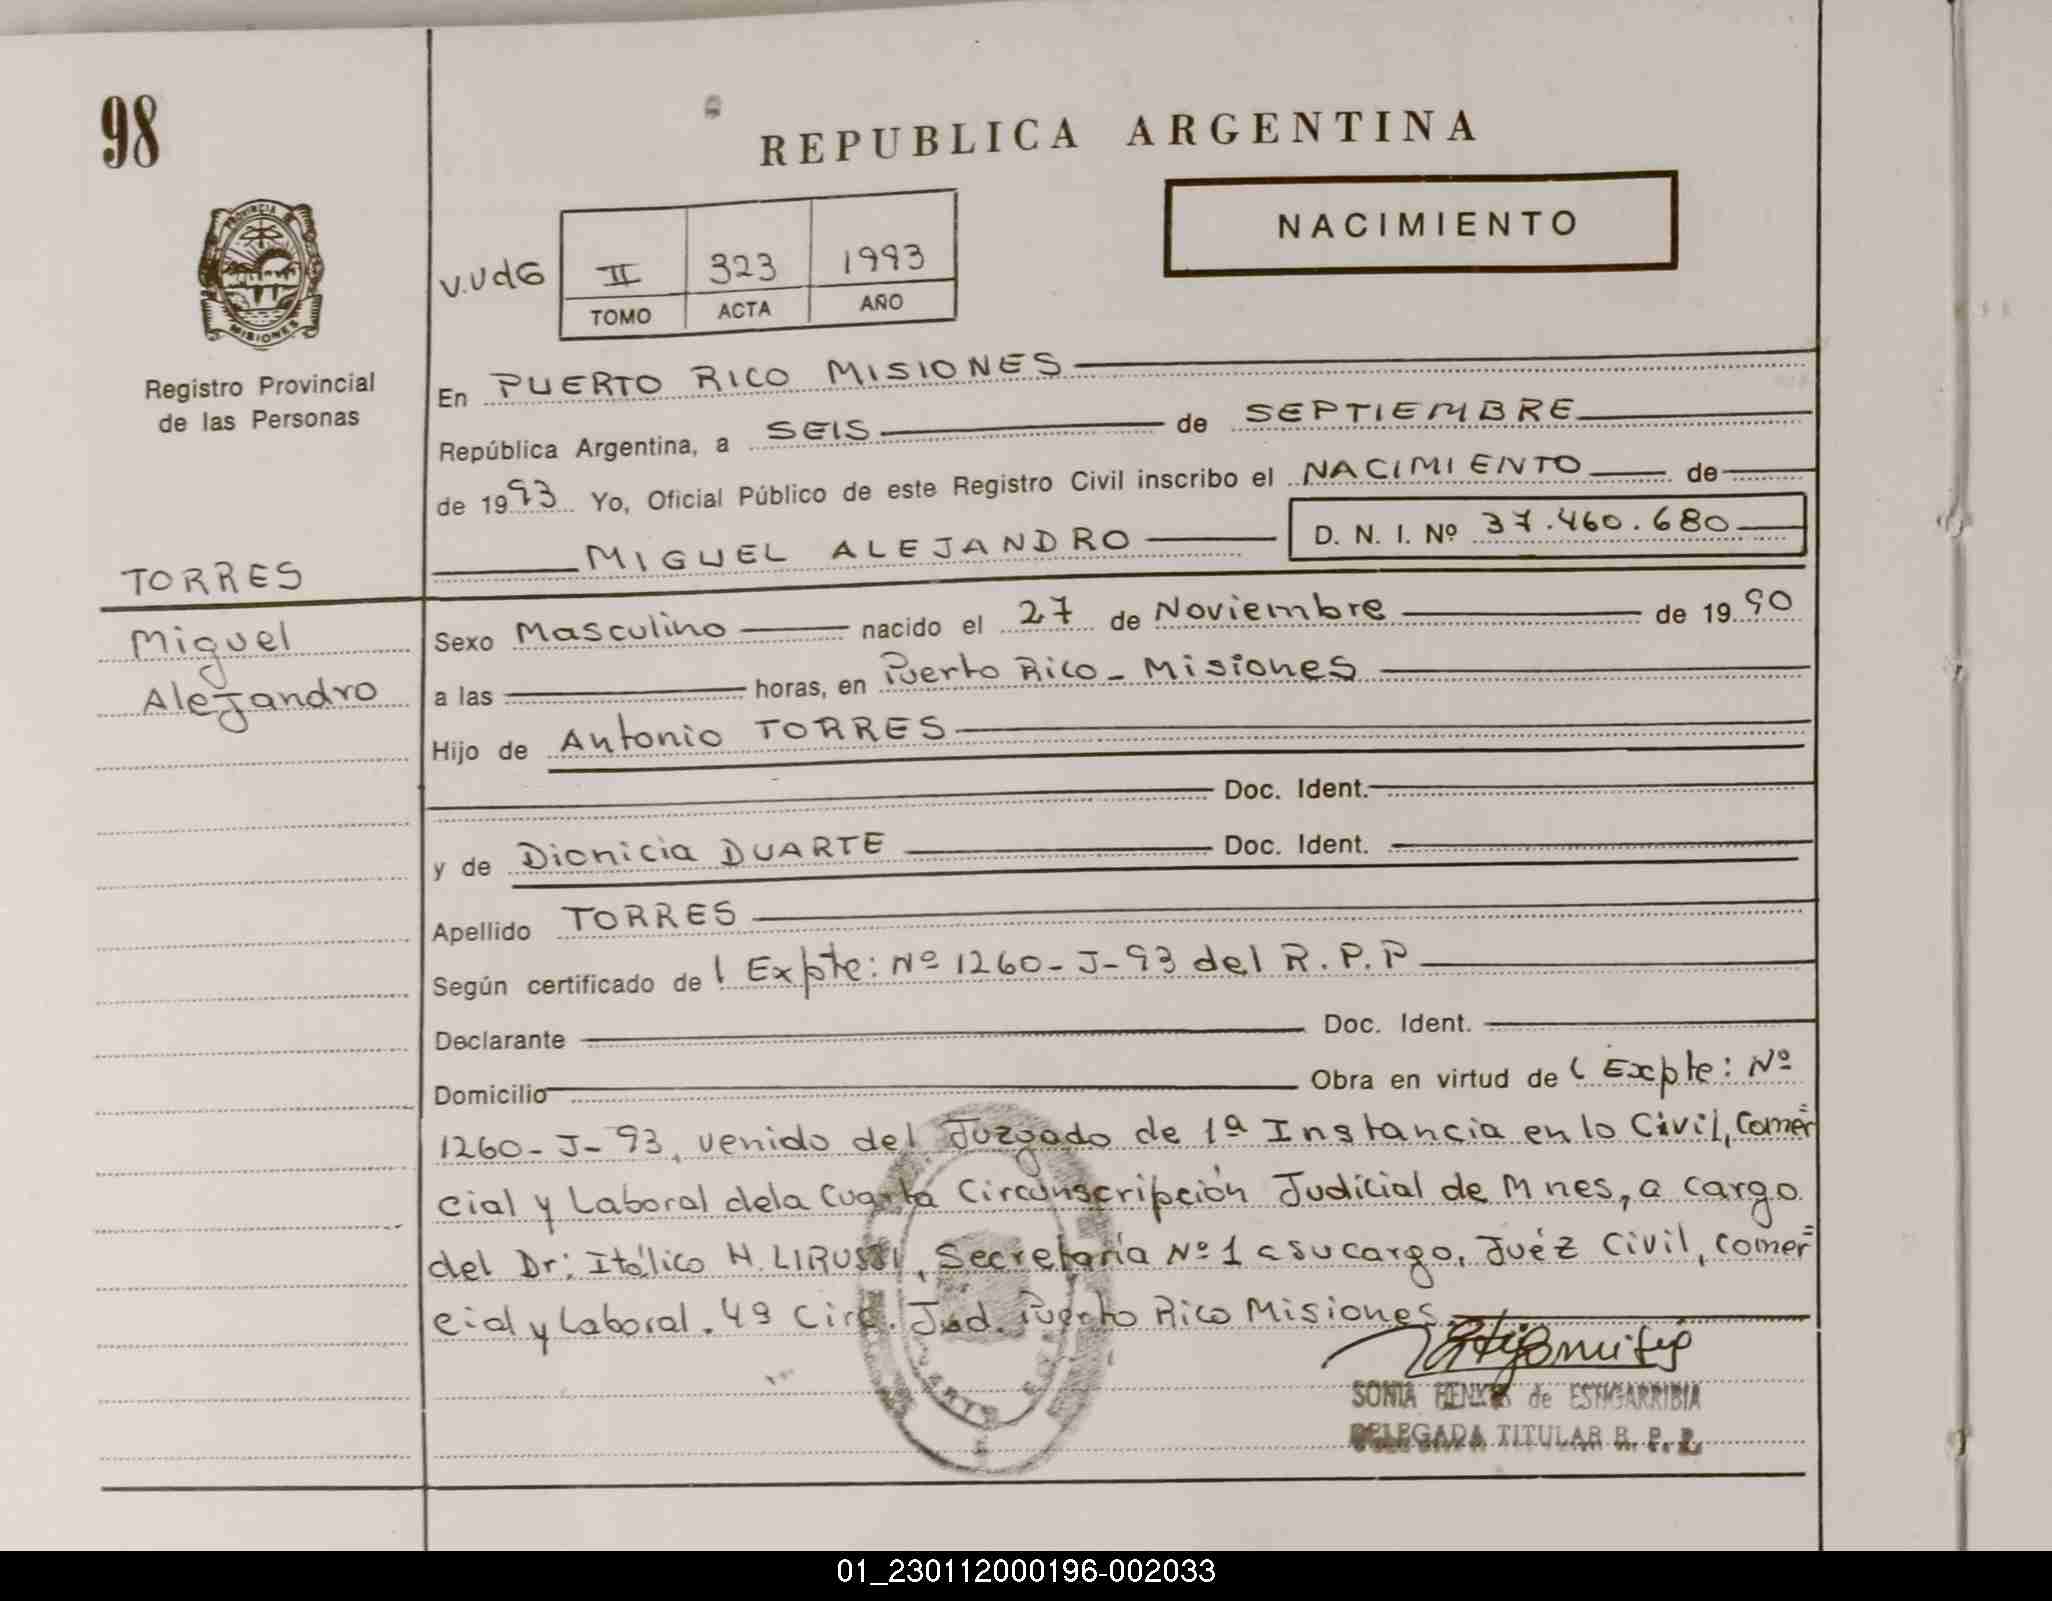 98
REPUBLICA ARGENTINA
NACIMIENTO
PROVINCIA DE
MISIONES
Registro Provincial
de las Personas
V.UdG II 323 1993
TOMO ACTA AÑO
En PUERTO RICO MISIONES
República Argentina, a SEIS de SEPTIEMBRE
de 1993 Yo, Oficial Público de este Registro Civil inscribo el NACIMIENTO de
MIGUEL ALEJANDRO D. N. I. Nº 37.460.680
TORRES
Miguel
Alejandro
Sexo Masculino nacido el 27 de Noviembre de 1990
a las horas, en Puerto Rico - Misiones
Hijo de Antonio TORRES
Doc. Ident.
y de Dionicia DUARTE Doc. Ident.
Apellido TORRES
Según certificado de l Expte: Nº 1260-J-93 del R.P.P
Declarante Doc. Ident.
Domicilio Obra en virtud de l Expte: Nº
1260-J-93, venido del Juzgado de 1ª Instancia en lo Civil, Comer
cial y Laboral dela Cuarta Circunscripción Judicial de Mnes, a cargo
del Dr: Itálico H. LIRUSSI, Secretaría Nº 1 a su cargo, Juéz Civil, comer
cial y Laboral. 4ª Circ. Jud. Puerto Rico Misiones.
SONIA HENKES de ESTIGARRIBIA
DELEGADA TITULAR R. P. P.
01_230112000196-002033